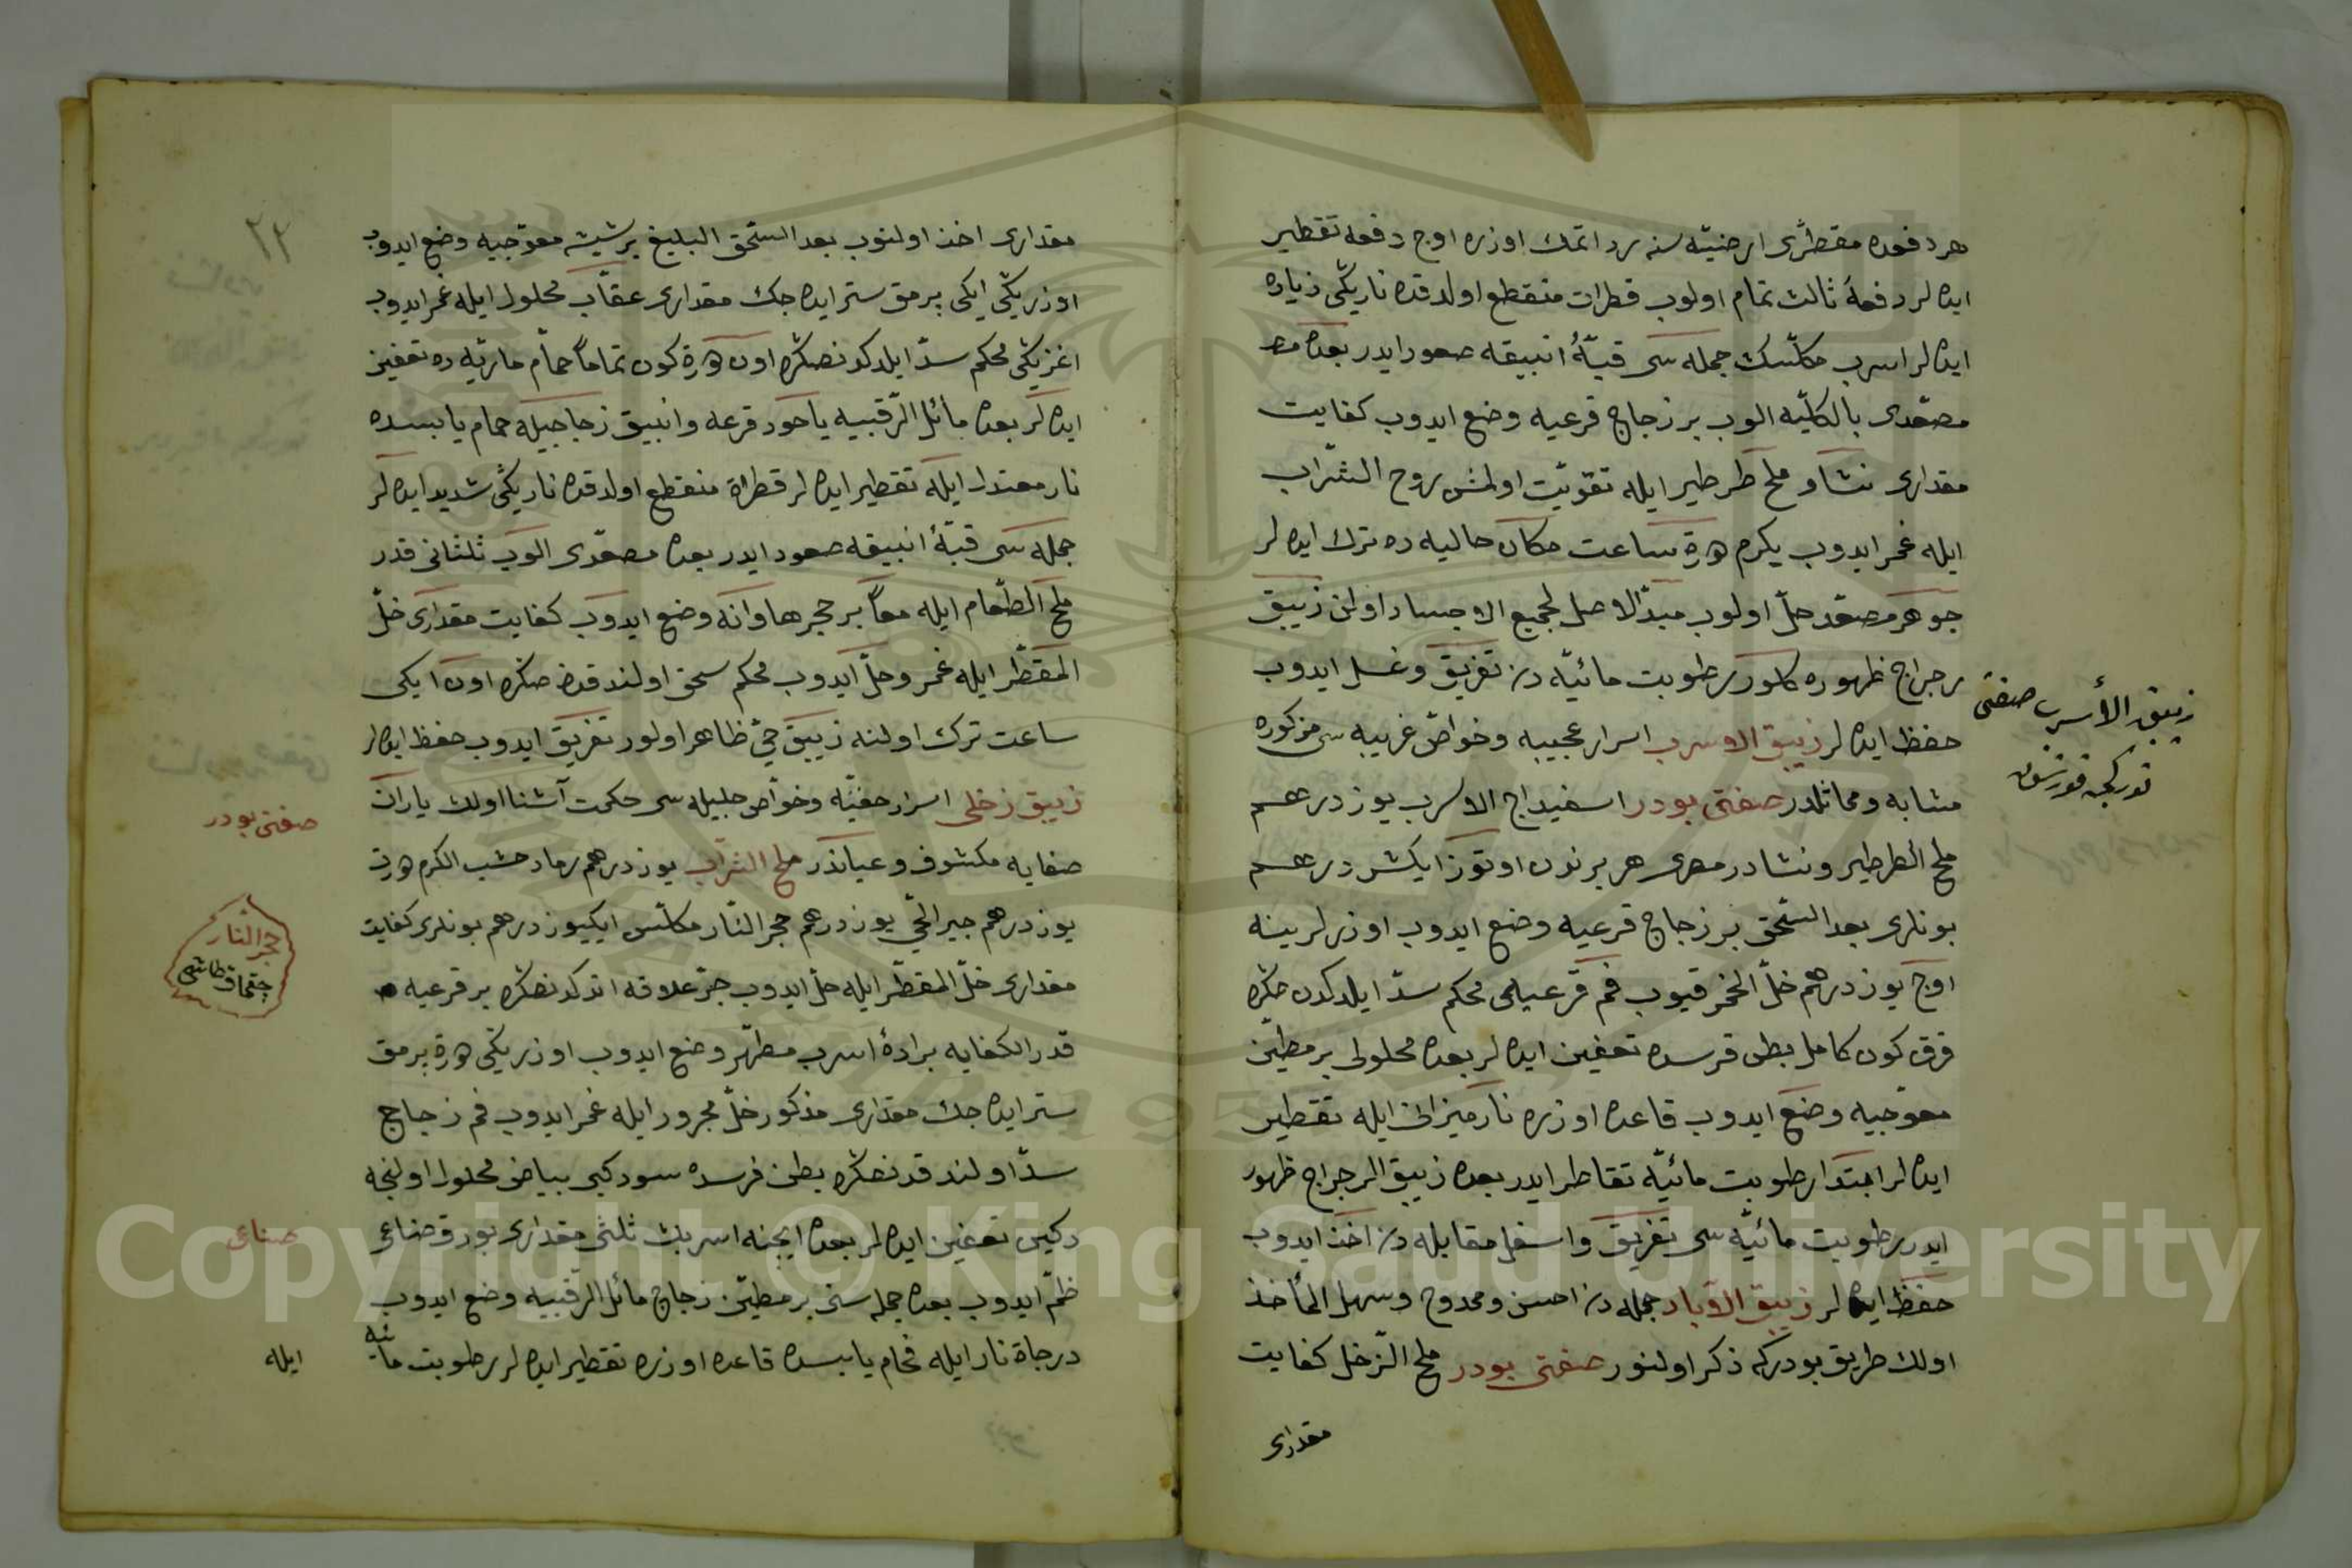 هر دفعده مقطرى ارضيّه سنه رد اتمك اوزره اوج دفعه تقطير
ايده لر دفعهٔ ثالث تمام اولوب قطرات منقطع اولدقده ناريكّى زياده
ايده لر اسرب مكلّسك جمله سى قبّهٔ انبيقه صعود ايدر بعده
مصعّدى بالكلّيه الوب بر زجاج قرعيه وضع ايدوب كفايت
مقدارى نشا و ملح طرطير ايله تقوّيت اولنمش روح الشّراب
ايله غمر ايدوب يكرم ساعت مكان حاليه ده ترك ايده لر
جوهر مصعّد حلّ اولوب مبدّالاصل لجميع الاجساد اولن زيبق
رجراج ظهوره كلور رطوبت مائيّه دن تفريق و غسل ايدوب
حفظ ايده لر زيبق الاوسرب اسرار عجيبه وخواصّ غريبه سى مزكوره
مشابه ومماثلدر صفتى بودر اسفيداج الاوسرب يوز درهم
ملح الطرطير ونشادر مصرى هر برندن اوتوز ايكيشر درهم
بونلرى بعد السّحق بر زجاج قرعيه وضع ايدوب اوزرلرينه
اوج يوز درهم خلّ الخمر قيوب فم قرعيه‌ى محكم سدّ ايلدكدن صكره
قرق كون كامل بطن فرسده تعفين ايده لر بعده محلولى بر مطيّن
معوّجيه وضع ايدوب قاعده اوزره نار ميزانى ايله تقطير
ايده لر ابتدا رطوبت مائيّه تقاطر ايدر بعده زيبق الرجراج ظهور
ايدر رطوبت مائيّه سى تفريق و اسفل مقابله دن اخذ ايدوب
حفظ ايده لر زيبق الاوبار جمله دن احسن وممدوح وسهل المأخذ
اولان طريق بودركه ذكر اولنور صفتى بودر ملح الزّحل كفايت
مقدارى
زيبق الأسرب صفتى
توركجه قورشون
مقدارى اخذ اولنوب بعد السّحق البليغ بر شيشه معوّجيه وضع ايدوب
اوزريكّى ايكى برمق ستر ايده جك مقدارى عقاب محلول ايله غمر ايدوب
اغزيكّى محكم سدّ ايلدكدنصكره اون كون تماماً حمّام ماريّه ده تعفين
ايده لر بعده مائل الرّقبيه ياخود قرعه و انبيق زجاجيله حمام يابسده
نار معتدل ايله تقطير ايده لر قطراة منقطع اولدقده ناريكّى شديد ايده لر
جمله سى قبّهٔ انبيقه صعود ايدر بعده مصعّدى الوب ثلثانى قدر
ملح الطّعام ايله معاً بر حجر هاوانه وضع ايدوب كفايت مقدارى خلّ
المقطّر ايله غمر و حلّ ايدوب محكم سحق اولندقدنصكره اون ايكى
ساعت ترك اولنه زيبق حىّ ظاهر اولور تفريق ايدوب حفظ ايده لر
زيبق زحلى اسرار خفيّه وخواصّ جليله سى حكمت آشنا اولان ياران
صفايه مكشوف و عياندر ملح الشّراب يوز درهم رماد خشب الكرم
يوز درهم جير الحىّ يوز درهم حجر النّار مكلّس ايكيوز درهم بونلرى كفايت
مقدارى خلّ المقطّر ايله حلّ ايدوب جرّ علاقه اندكدنصكره بر قرعيه
قدر الكفايه برادهٔ اسرب مطهّر وضع ايدوب اوزريكّى برمق
ستر ايده جك مقدارى مذكور خلّ مجرور ايله غمر ايدوب فم زجاج
سدّ اولندقدنصكره بطن فرسده سود كبى بياض محلول اولنجه
دكين تعفين ايده لر بعده ايجنه اسربك ثلثى مقدارى بورق صناعى
ضمّ ايدوب بعده جمله سنى بر مطيّن زجاج مائل الرّقبيه وضع ايدوب
درجاة نار ايله حمّام يابسده قاعده اوزره تقطير ايده لر رطوبت مائيه
ايله
صفتى بودر
حجر النّار
چقماق طاشى
صناعى
Copyright © King Saud University